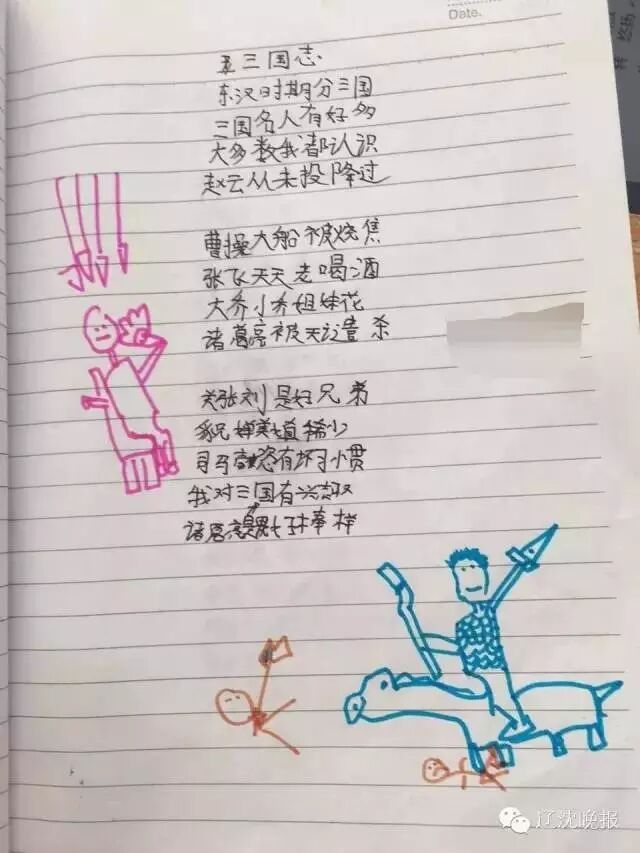 Date.
三国志
东汉时期分三国
三国名人有好多
大多数我都认识
赵云从未投降过
曹操大船被烧焦
张飞天天老喝酒
大乔小乔姐妹花
诸葛亮被天谴杀
关张刘是好兄弟
稀少
司马 有坏习惯
我对三国有兴趣
诸葛亮是 榜样
辽沈晚报